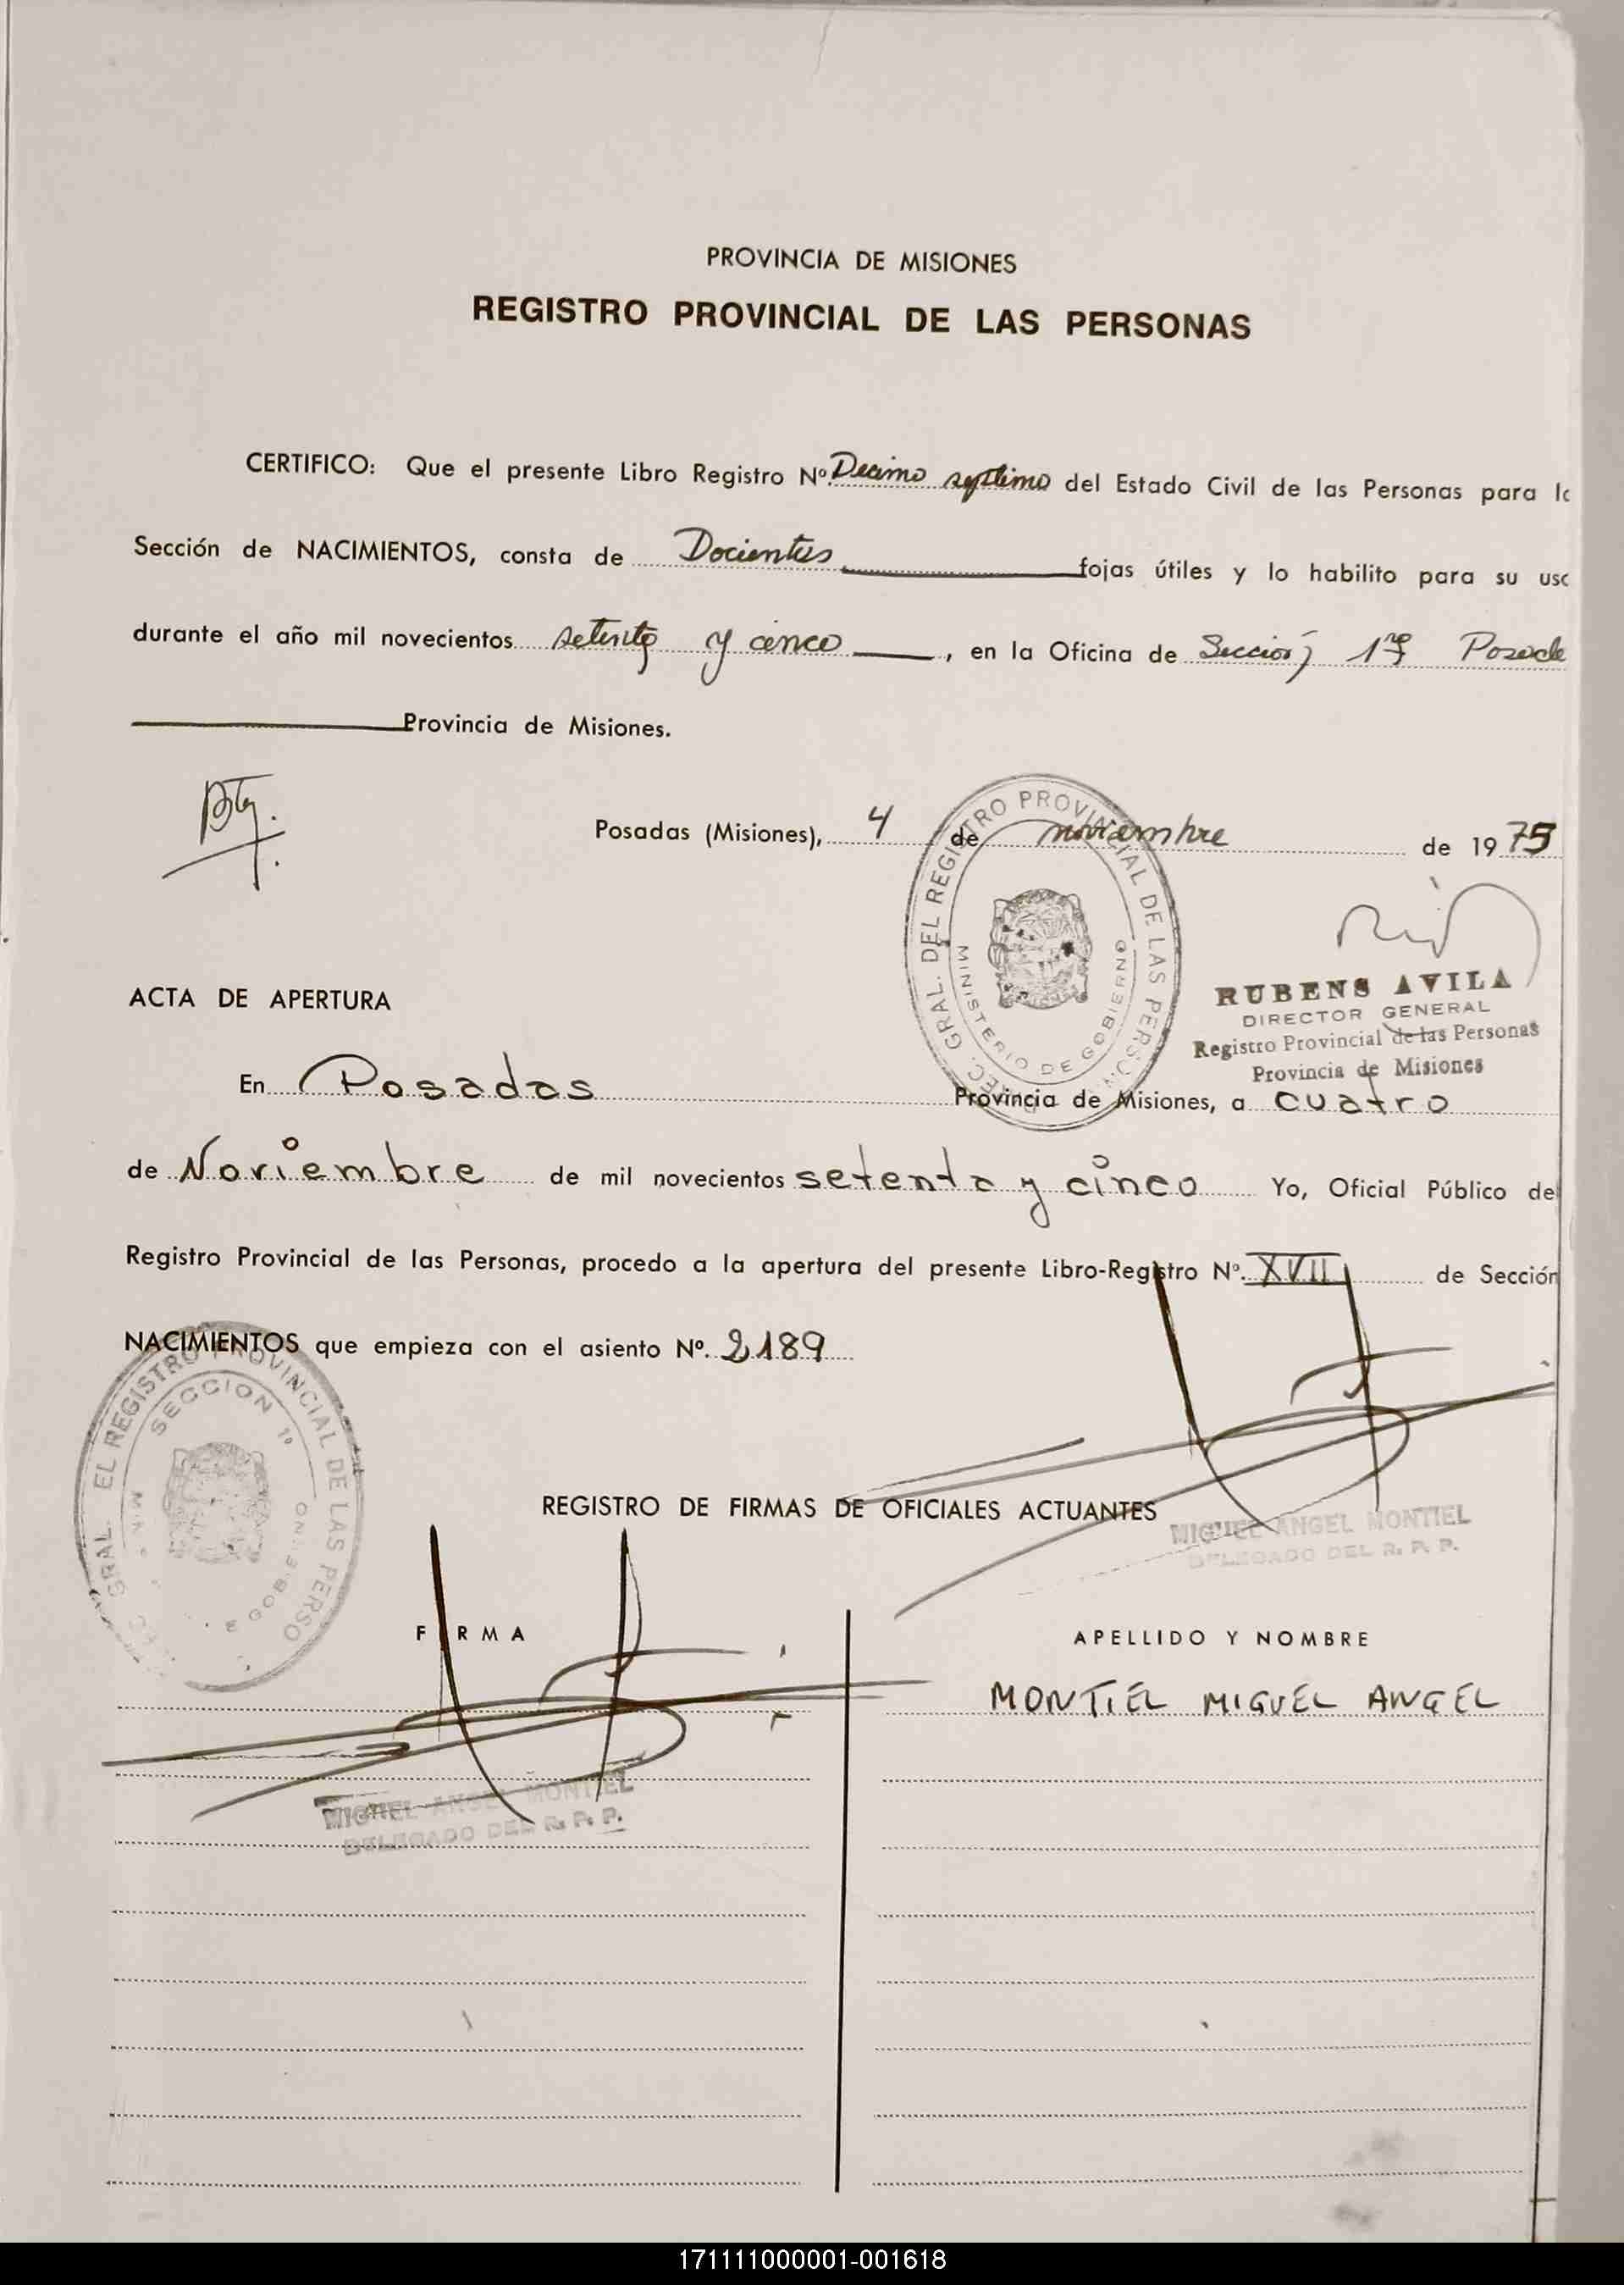 PROVINCIA DE MISIONES
REGISTRO PROVINCIAL DE LAS PERSONAS
CERTIFICO: Que el presente Libro Registro Nº. Decimo septimo del Estado Civil de las Personas para la
Sección de NACIMIENTOS, consta de Docientos fojas útiles y lo habilito para su uso
durante el año mil novecientos setenta y cinco, en la Oficina de Sección 1ra Posada
Provincia de Misiones.
Posadas (Misiones), 4 de noviembre de 1975
DIREC. GRAL. DEL REGISTRO PROVINCIAL DE LAS PERSONAS
MINISTERIO DE GOBIERNO
RUBENS AVILA
DIRECTOR GENERAL
Registro Provincial de las Personas
Provincia de Misiones
ACTA DE APERTURA
En Posadas Provincia de Misiones, a cuatro
de Noviembre de mil novecientos setenta y cinco Yo, Oficial Público del
Registro Provincial de las Personas, procedo a la apertura del presente Libro-Registro Nº. XVII de Sección
NACIMIENTOS que empieza con el asiento Nº. 2189
GRAL. EL REGISTRO PROVINCIAL DE LAS PERSO
SECCION 1ª
REGISTRO DE FIRMAS DE OFICIALES ACTUANTES
MIGUEL ANGEL MONTIEL
DELEGADO DEL R. P. P.
FIRMA
APELLIDO Y NOMBRE
MONTIEL MIGUEL ANGEL
MIGUEL ANGEL MONTIEL
DELEGADO DEL R. P. P.
171111000001-001618